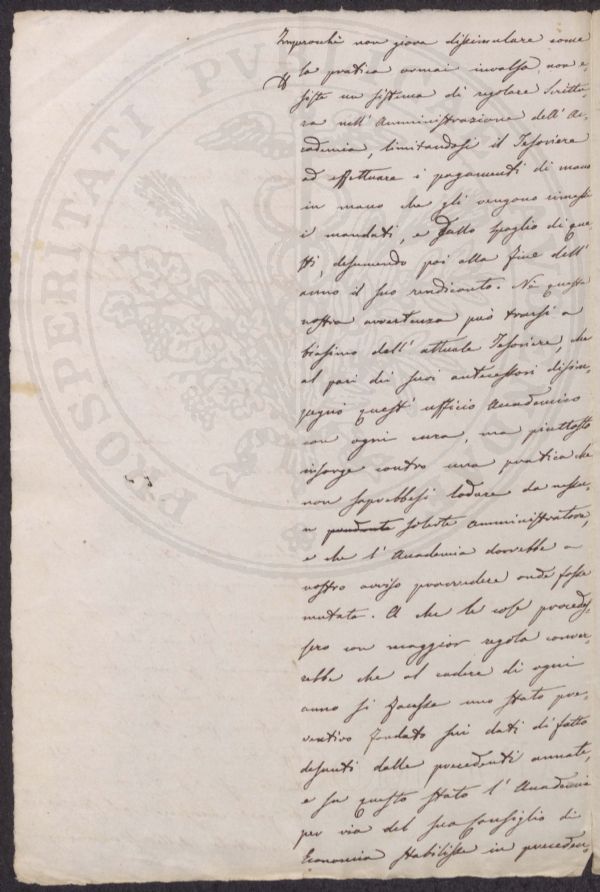 Imperochè non giova dissimulare come
la pratica ormai invalsa, non e-
siste un sistema di regolare Scrittu-
ra nell' Amministrazione dell' Ac-
cademia, limitandosi il Tesoriere
ad effettuare i pagamenti di mano
in mano che gli vengono rimessi
i mandati, e dallo spoglio di que-
sti, desumendo poi alla fine dell'
anno il suo rendiconto. Nè questa
nostra avvertenza può trarsi a
biasimo dell' attuale Tesoriere, che
al pari dei suoi antecessori disim-
pegnò quest' ufficio Accademico
con ogni cura, ma piuttosto
insorge contro una pratica che
non saprebbesi lodare da nessu-
n prudente solerte amministratore,
e che l' Accademia dovrebbe a
nostro avviso provvedere onde fosse
mutata. A che le cose procedes-
sero con maggior regola conver-
rebbe che al cadere di ogni
anno si facesse uno stato pre-
ventivo fondato sui dati di fatto
desunti dalle precedenti annate,
e su questo stato l' Accademia
per via del suo Consiglio di
Economia stabilisse in preceden-
PROSPERITATI PUB